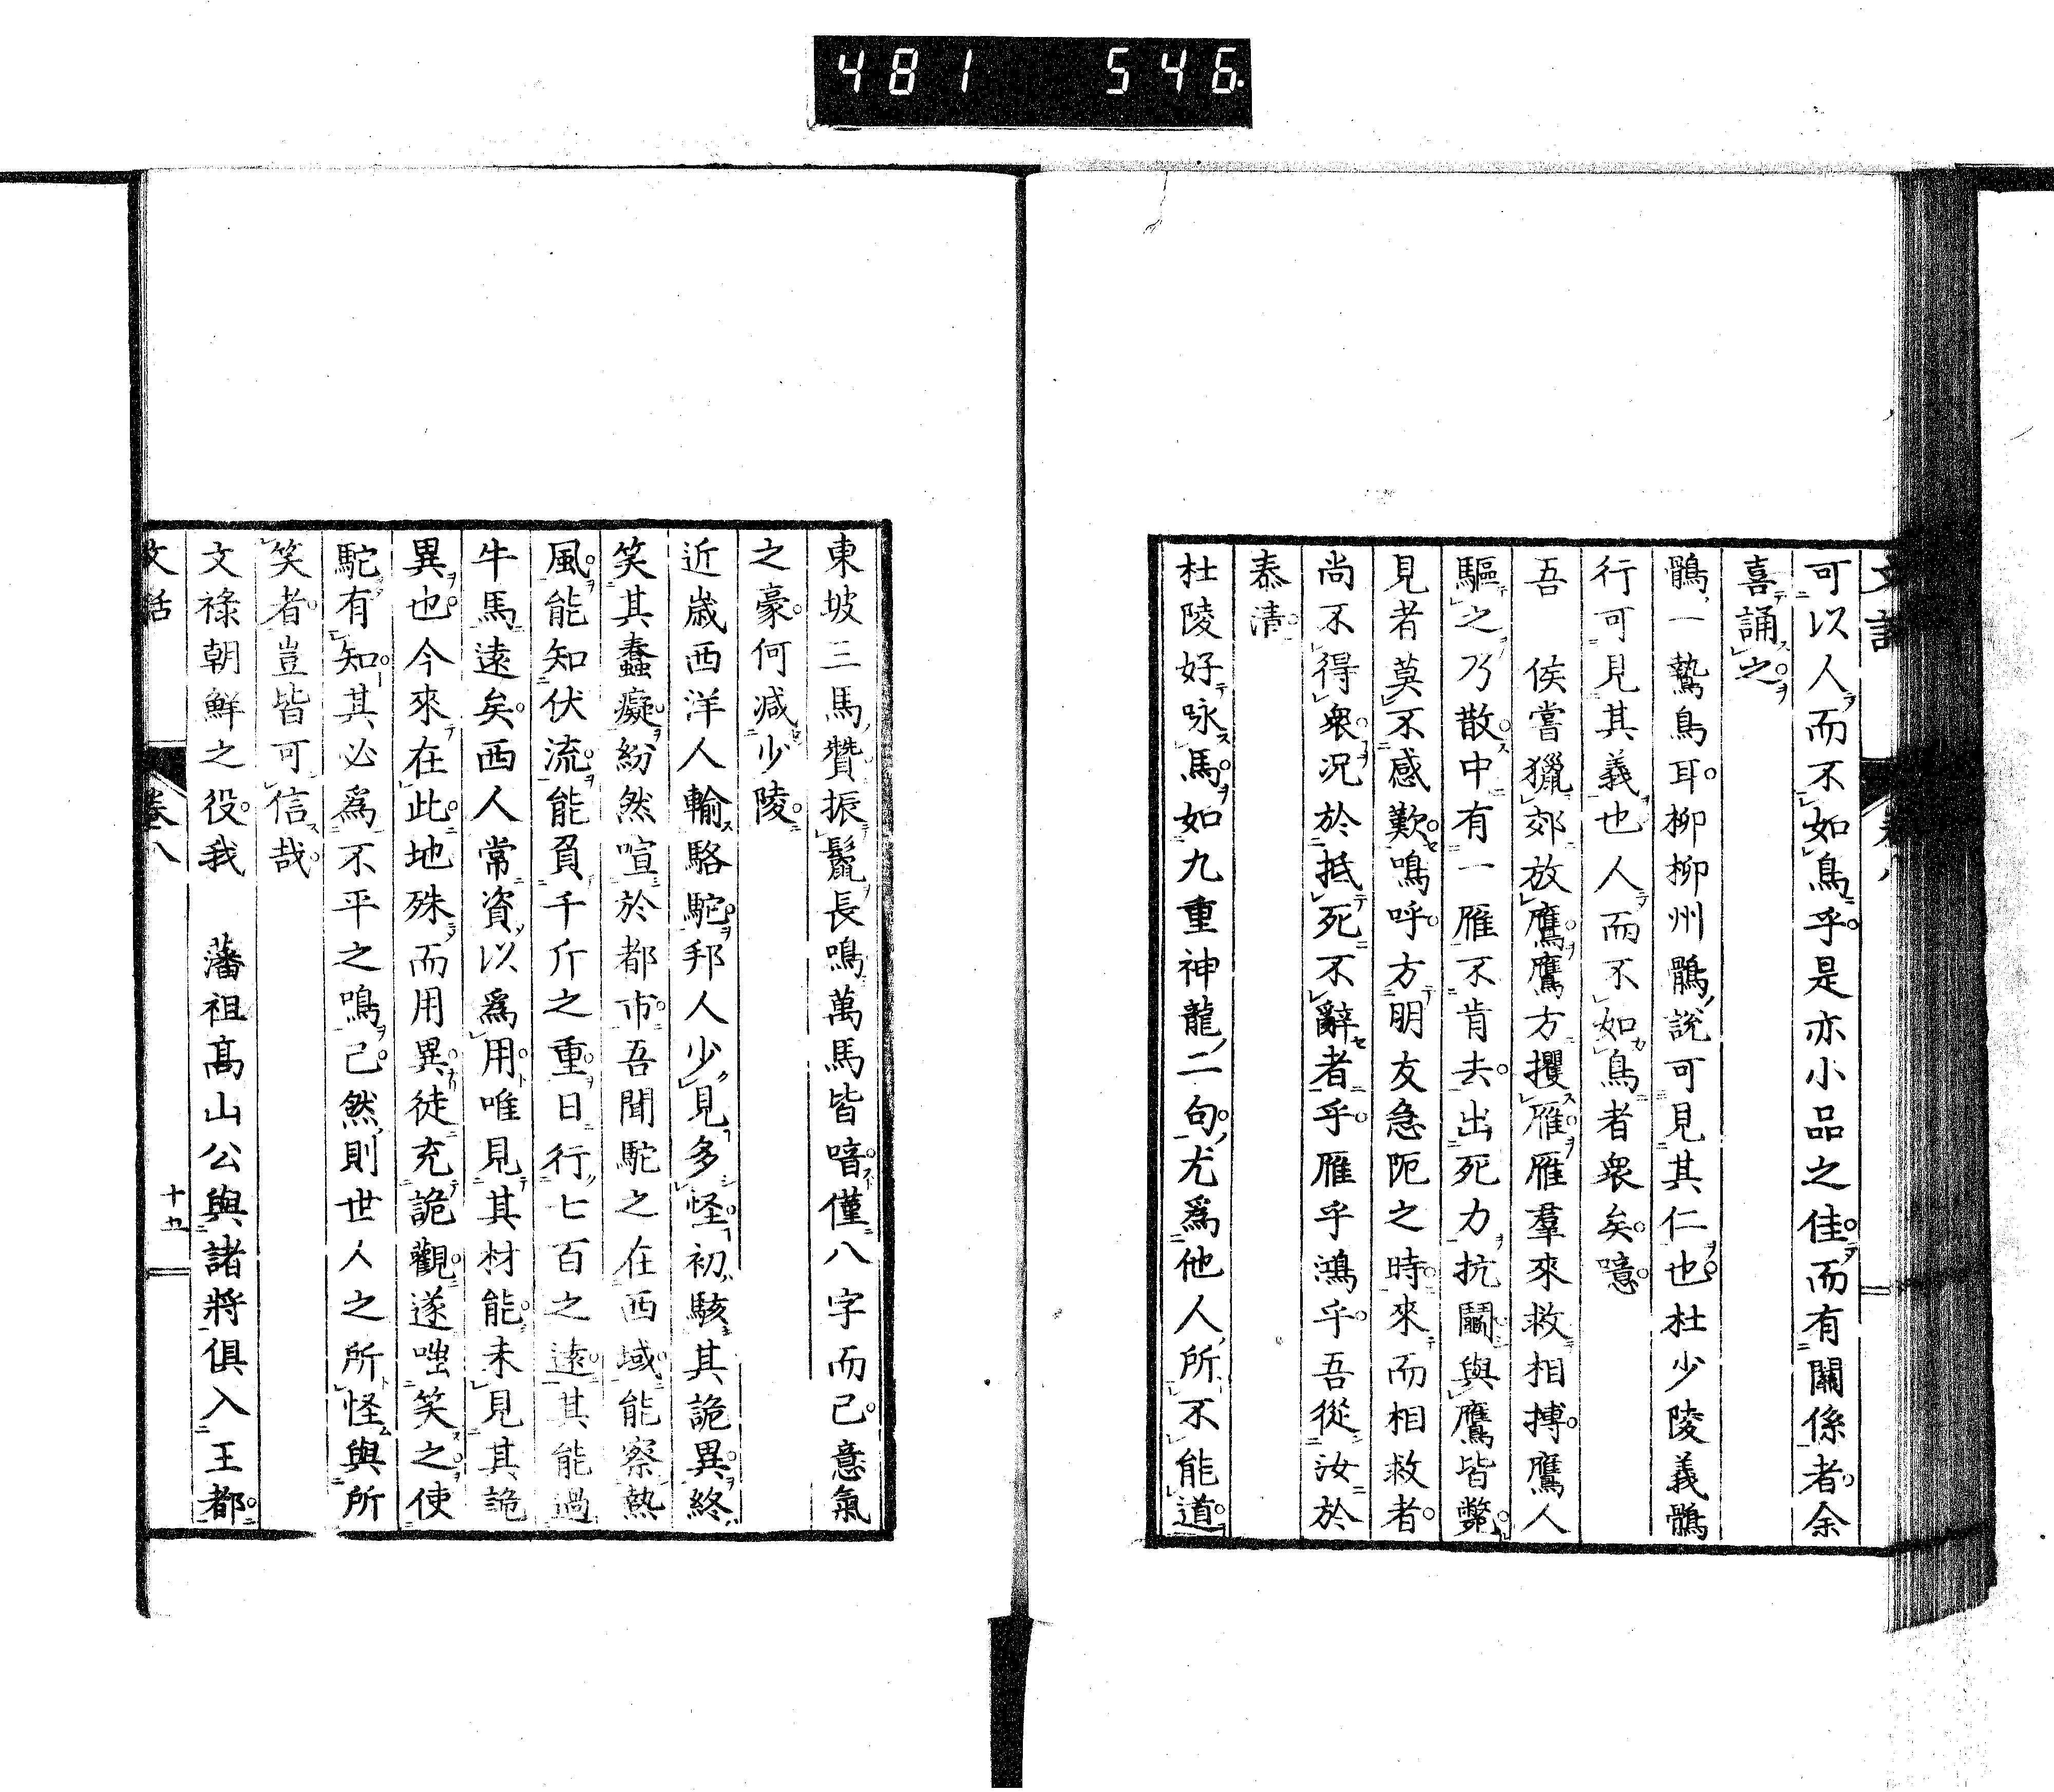 481 546.
可以人而不如鳥乎是亦小品之佳而有關係者余
喜誦之
鶻一鷙鳥耳柳柳州鶻說可見其仁也杜少陵義鶻
行可見其義也人而不如鳥者衆矣噫
吾　侯嘗獵郊放鷹鷹方攫雁雁羣來救相搏鷹人
驅之乃散中有一雁不肯去出死力抗鬭與鷹皆斃
見者莫不感歎嗚呼方朋友急阨之時來而相救者
尚不得衆況於抵死不辭者乎雁乎鴻乎吾從汝於
泰清
杜陵好咏馬如九重神龍二句尤爲他人所不能道
東坡三馬贊振鬛長鳴萬馬皆喑僅八字而已意氣
之豪何減少陵
近歲西洋人輸駱駝邦人少見多怪初駭其詭異終
笑其蠢癡紛然喧於都市吾聞駝之在西域能察熱
風能知伏流能負千斤之重日行七百之遠其能過
牛馬遠矣西人常資以爲用唯見其材能未見其詭
異也今來在此地殊而用異徒充詭觀遂咄笑之使
駝有知其必爲不平之鳴已然則世人之所怪與所
笑者豈皆可信哉
文祿朝鮮之役我　藩祖高山公與諸將俱入王都
文話
卷八
十九